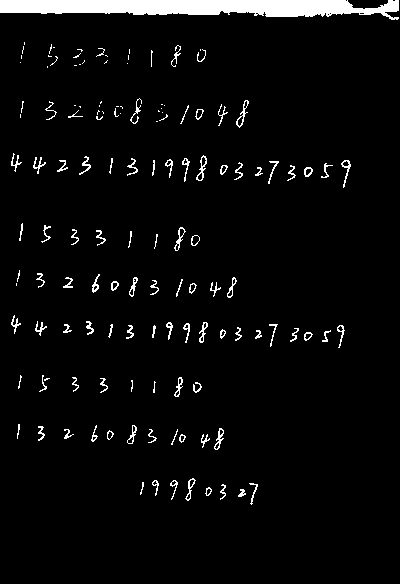 15331180
13260831048
442313199803273059
15331180
13260831048
442313199803273059
15331180
13260831048
19980327